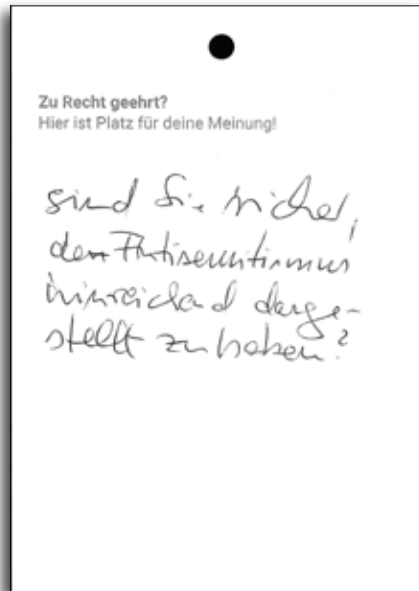 Zu Recht geehrt?
Hier ist Platz für deine Meinung!
sind Sie sicher,
den Antisemitismus
hinreichend darge-
stellt zu haben?